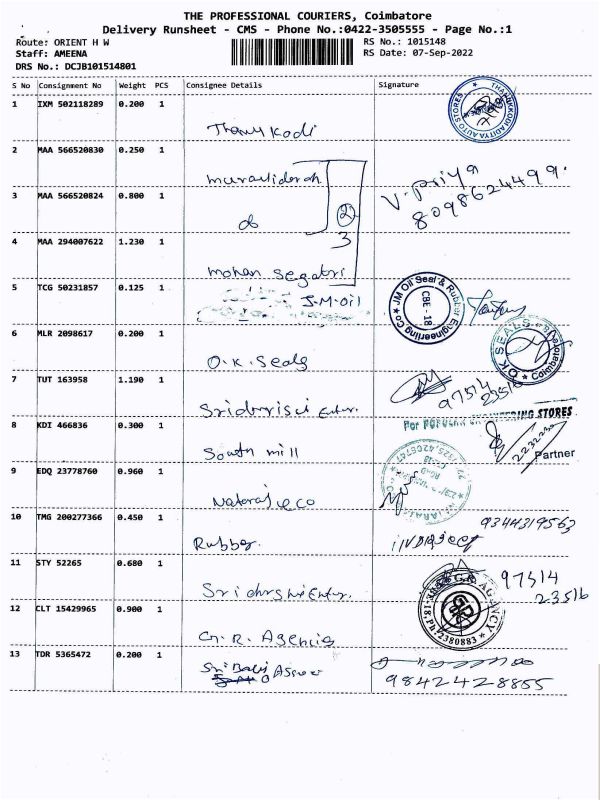 THE PROFESSIONAL COURIERS, Coimbatore
Delivery Runsheet - CMS - Phone No.:0422-3505555 - Page No.:1
Route: ORIENT H W
RS No.: 1015148
Staff: AMEENA
RS Date: 07-Sep-2022
DRS No.: DCJB101514801
S No Consignment No Weight PCS Consignee Details Signature
1 IXM 502118289 0.200 1
2 MAA 566520830 0.250 1
V. Priya
8098624499.
3 MAA 566520824 0.800 1
do 2
3
4 MAA 294007622 1.230 1
mohan
5 TCG 50231857 0.125 1
J.M.Oil
JM Oil Seal & Rubber Engineering Co
CBE - 18
6 MLR 2098617 0.200 1
O.K. Seals
OK SEALS Coimbatore
7 TUT 163958 1.190 1
97514
23516
8 KDI 466836 0.300 1
South mill
For POPULAR ENGINEERING STORES
Partner
9 EDQ 23778760 0.960 1
10 TMG 200277366 0.450 1
Rubber.
9344319563
11 STY 52265 0.680 1
97514
23516
12 CLT 15429965 0.900 1
G.R. Agencies
G.R. AGENCY
Ph: 2380883
13 TDR 5365472 0.200 1
Sri Balaji
9842428855